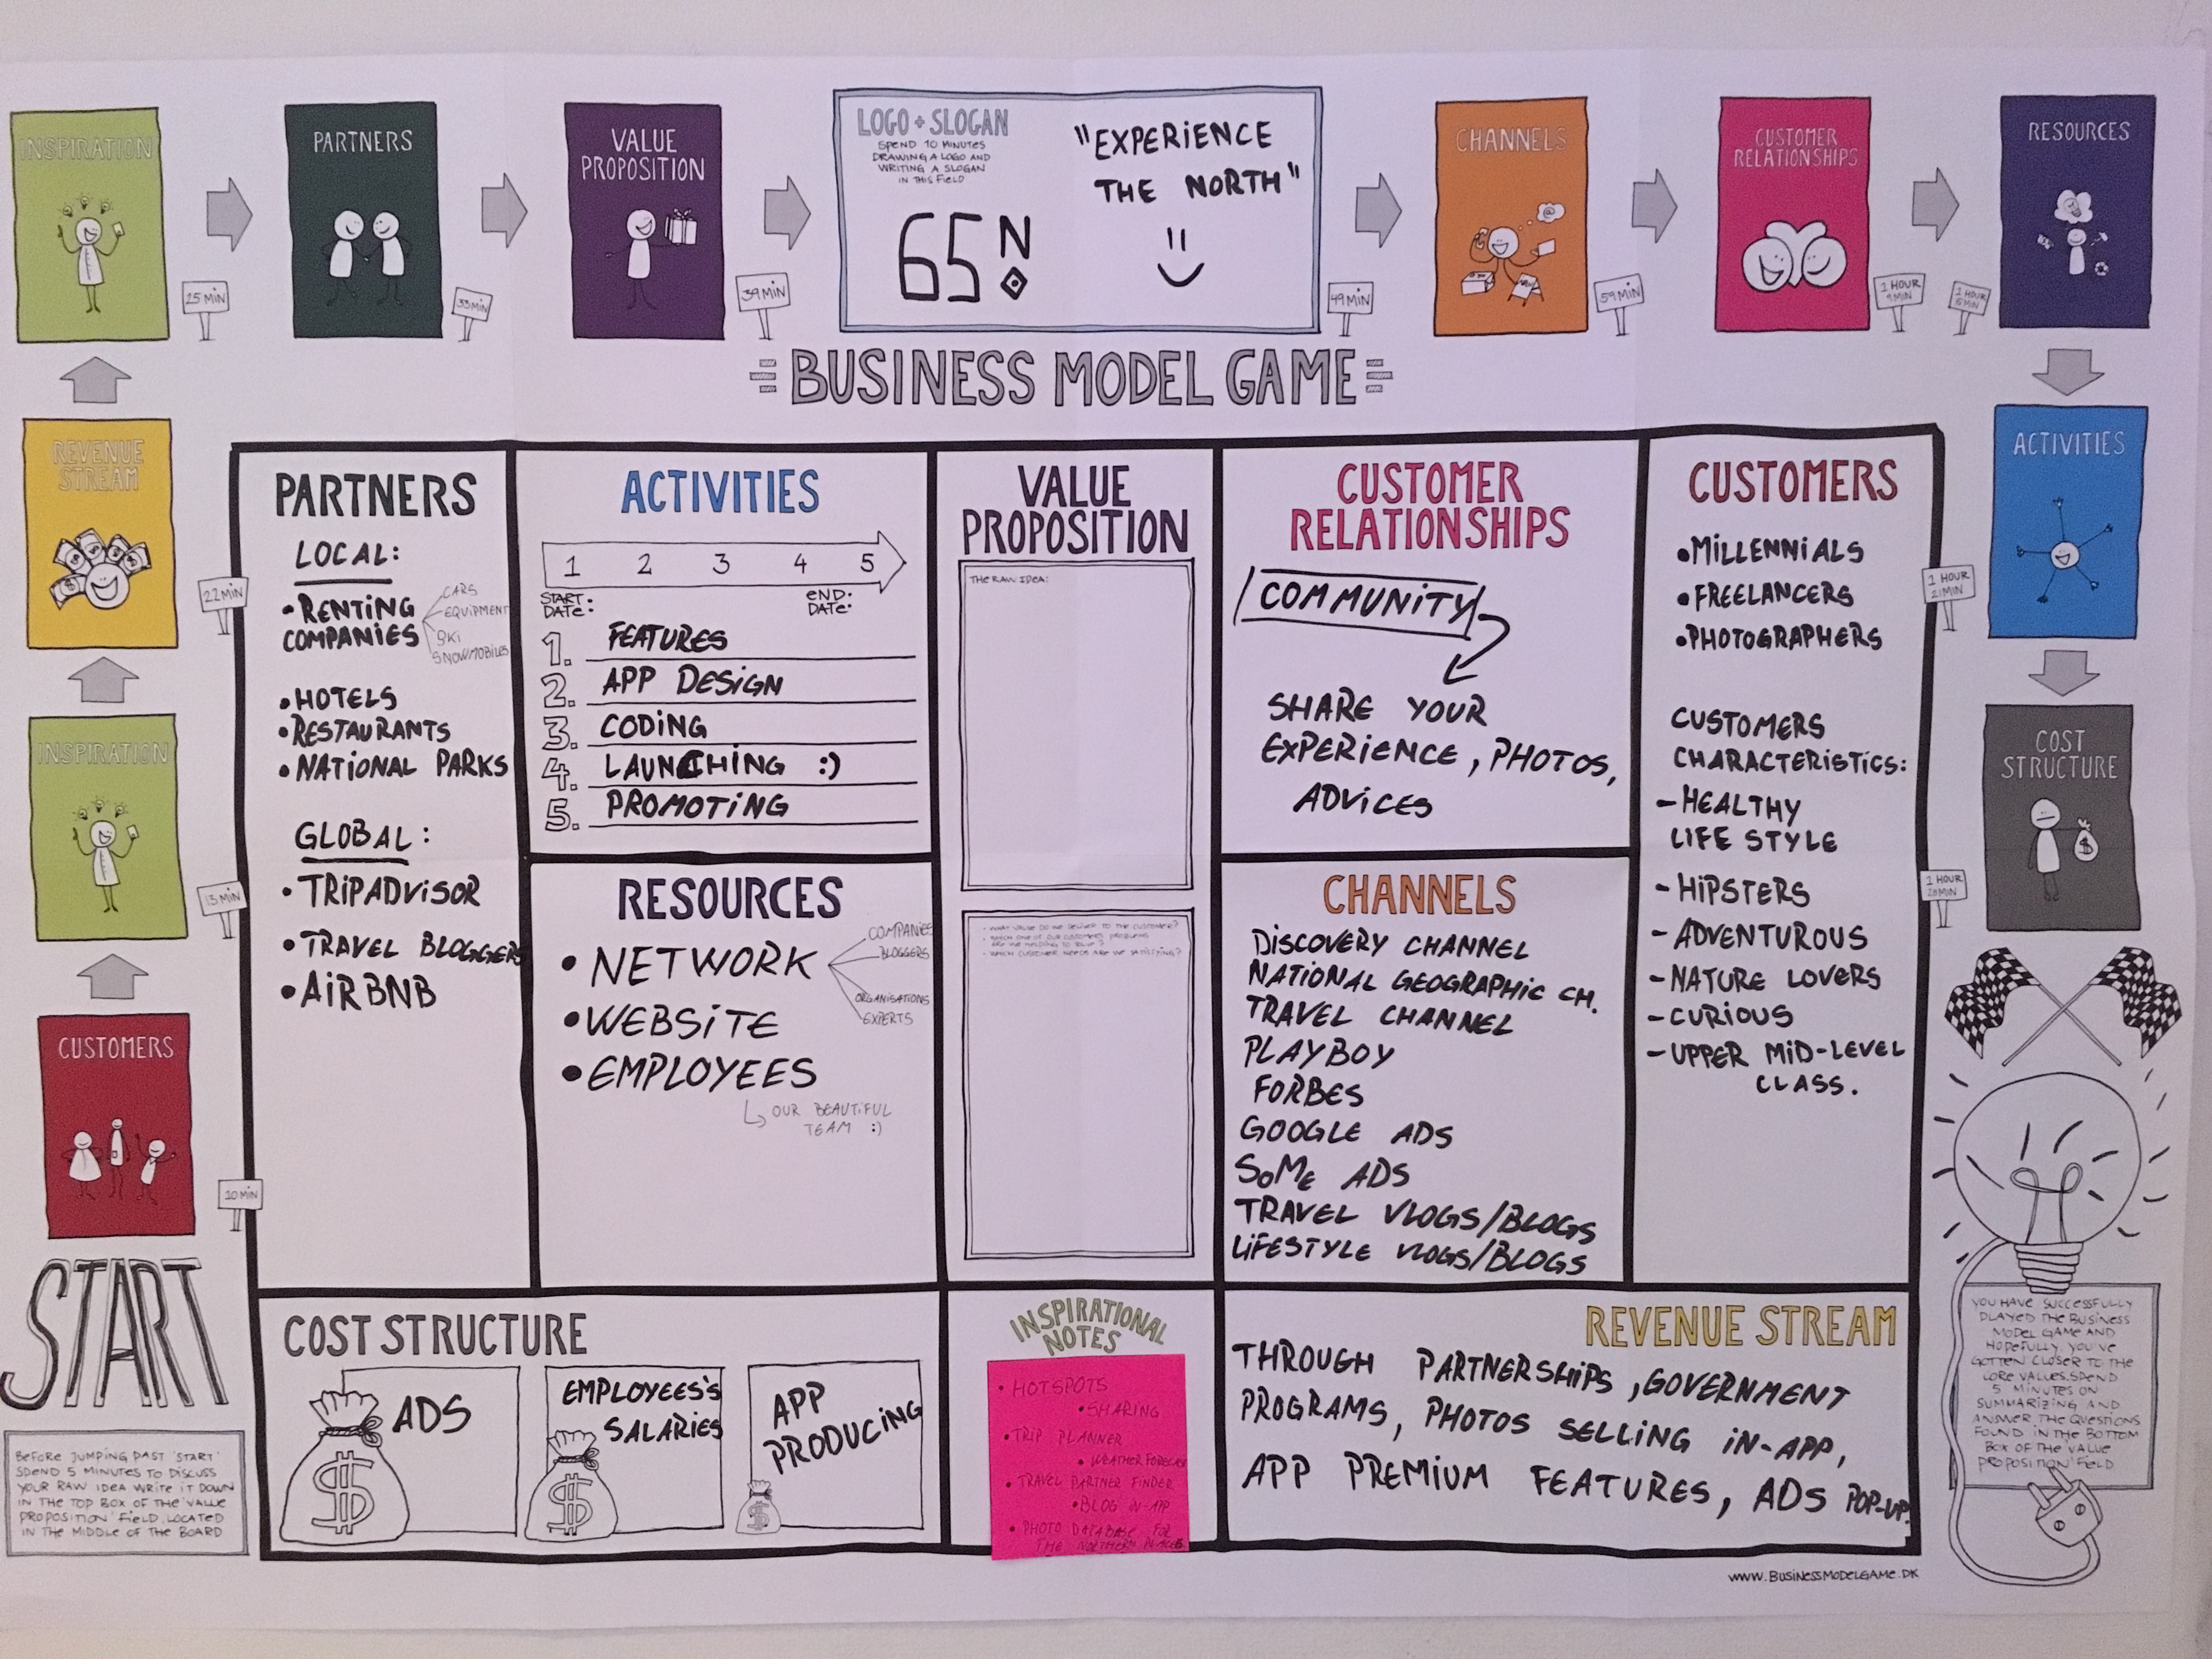 INSPIRATION
25 MIN
PARTNERS
33 MIN
VALUE
PROPOSITION
39 MIN
LOGO + SLOGAN
SPEND 10 MINUTES
DRAWING A LOGO AND
WRITING A SLOGAN
IN THIS FIELD
"EXPERIENCE
THE NORTH"
65 N
49 MIN
CHANNELS
59 MIN
CUSTOMER
RELATIONSHIPS
1 HOUR
9 MIN
1 HOUR
RESOURCES
BUSINESS MODEL GAME
REVENUE
STREAM
22 MIN
INSPIRATION
13 MIN
CUSTOMERS
10 MIN
START
BEFORE JUMPING PAST 'START'
SPEND 5 MINUTES TO DISCUSS
YOUR RAW IDEA WRITE IT DOWN
IN THE TOP BOX OF THE 'VALUE
PROPOSITION' FIELD, LOCATED
IN THE MIDDLE OF THE BOARD
PARTNERS
LOCAL:
• RENTING
COMPANIES
CARS
EQUIPMENT
SKI
SNOWMOBILES
• HOTELS
• RESTAURANTS
• NATIONAL PARKS
GLOBAL:
• TRIPADVISOR
• TRAVEL BLOGGERS
• AIRBNB
ACTIVITIES
1 2 3 4 5
START
DATE:
END:
DATE:
1. FEATURES
2. APP DESIGN
3. CODING
4. LAUNCHING :)
5. PROMOTING
RESOURCES
• NETWORK
COMPANIES
BLOGGERS
ORGANISATIONS
EXPERTS
• WEBSITE
• EMPLOYEES
OUR BEAUTIFUL
TEAM :)
VALUE
PROPOSITION
THE RAW IDEA:
• WHAT VALUE DO WE DELIVER TO THE CUSTOMER?
• WHICH ONE OF OUR CUSTOMERS PROBLEMS
ARE WE HELPING TO SOLVE?
• WHICH CUSTOMER NEEDS ARE WE SATISFYING?
CUSTOMER
RELATIONSHIPS
COMMUNITY
SHARE YOUR
EXPERIENCE, PHOTOS,
ADVICES
CHANNELS
DISCOVERY CHANNEL
NATIONAL GEOGRAPHIC CH.
TRAVEL CHANNEL
PLAYBOY
FORBES
GOOGLE ADS
SOME ADS
TRAVEL VLOGS/BLOGS
LIFESTYLE VLOGS/BLOGS
CUSTOMERS
• MILLENNIALS
• FREELANCERS
• PHOTOGRAPHERS
CUSTOMERS
CHARACTERISTICS:
- HEALTHY
LIFE STYLE
- HIPSTERS
- ADVENTUROUS
- NATURE LOVERS
- CURIOUS
- UPPER MID-LEVEL
CLASS.
COST STRUCTURE
ADS
EMPLOYEES'S
SALARIES
APP
PRODUCING
INSPIRATIONAL
NOTES
• HOTSPOTS
• SHARING
• TRIP PLANNER
• WEATHER FORECAST
• TRAVEL PARTNER FINDER
• BLOG IN-APP
• PHOTO DATABASE FOR
THE NORTHERN PLACES
REVENUE STREAM
THROUGH PARTNERSHIPS, GOVERNMENT
PROGRAMS, PHOTOS SELLING IN-APP,
APP PREMIUM FEATURES, ADS POP-UP.
ACTIVITIES
1 HOUR
21 MIN
COST
STRUCTURE
1 HOUR
YOU HAVE SUCCESSFULLY
PLAYED THE BUSINESS
MODEL GAME AND
HOPEFULLY, YOU'VE
GOTTEN CLOSER TO THE
CORE VALUES. SPEND
5 MINUTES ON
SUMMARIZING AND
ANSWER THE QUESTIONS
FOUND IN THE BOTTOM
BOX OF THE 'VALUE
PROPOSITION' FIELD
WWW.BUSINESSMODELGAME.DK